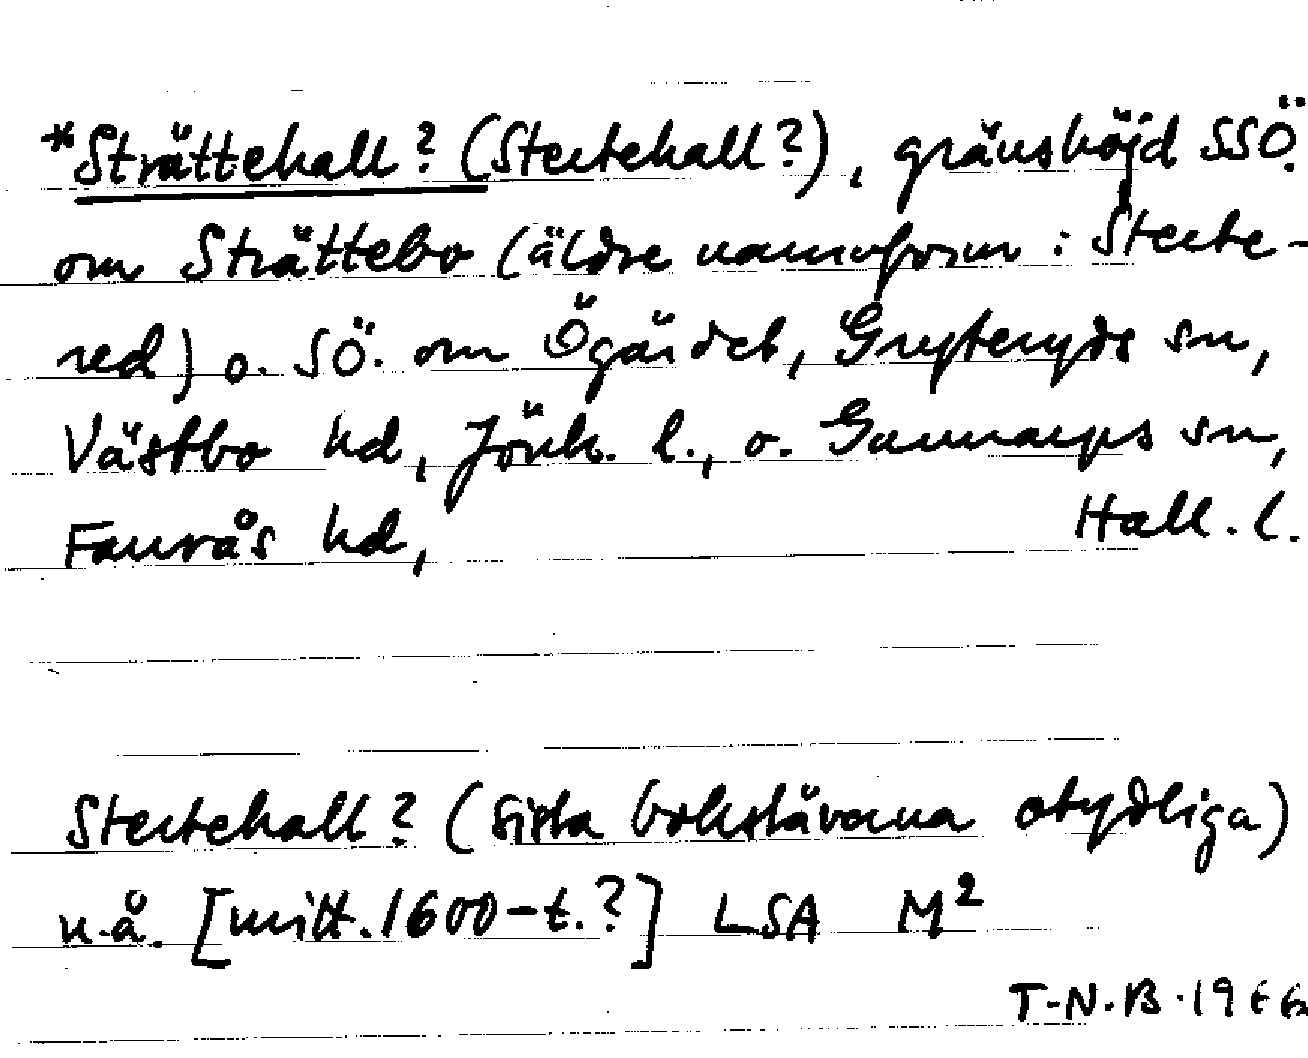 *Strättehall? (Stertehall?), gränshöjd SSÖ.
om Strättebo (äldre namnform: Sterte-
red) o. SÖ. om Ögärdet, Gryteryds sn,
Västbo hd, Jönk. l., o. Gunnarps sn,
Faurås hd, Hall. l.
Stertehall? (sista bokstäverna otydliga)
u.å. [mitt. 1600-t.?] LSA M²
T-N.B. 1966